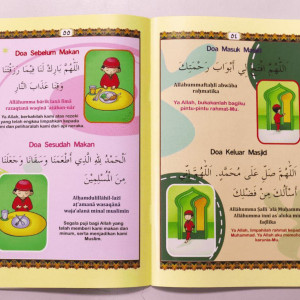 Doa Sebelum Makan
اللَّهُمَّ بَارِكْ لَنَا فِيمَا رَزَقْتَنَا
وَقِنَا عَذَابَ النَّارِ
Allâhumma bârik lanâ fîmâ
razaqtanâ waqinâ
Ya Allah, berkahilah kami dalam rezeki
yang telah engkau limpahkan kepada
kami dan peliharalah kami dari api neraka
Doa Sesudah Makan
الْحَمْدُ لِلَّهِ الَّذِي أَطْعَمَنَا وَسَقَانَا وَجَعَلَنَا
مِنَ الْمُسْلِمِيْنَ
Alhamdulillâhil-ladzî
at'amanâ wasaqânâ
waja'alanâ minal muslimîn
Segala puji bagi Allah yang
telah memberi kami makan dan
minum, serta menjadikan kami
Muslim.
Doa Masuk
اللَّهُمَّ افْتَحْ لِي أَبْوَابَ رَحْمَتِكَ
Allâhummaftahlî abwâba
rahmatika
Ya Allah, bukakanlah bagiku
pintu-pintu rahmat-Mu.
Doa Keluar Masjid
اللَّهُمَّ صَلِّ عَلَى مُحَمَّدٍ. اللَّهُمَّ
أَسْأَلُكَ مِنْ فَضْلِكَ
Allâhumma
Allâhumma innî as'aluka min
fadlika
Ya Allah, limpahkan rahmat kepada
Muhammad. Ya Allah aku memohon
karunia-Mu.